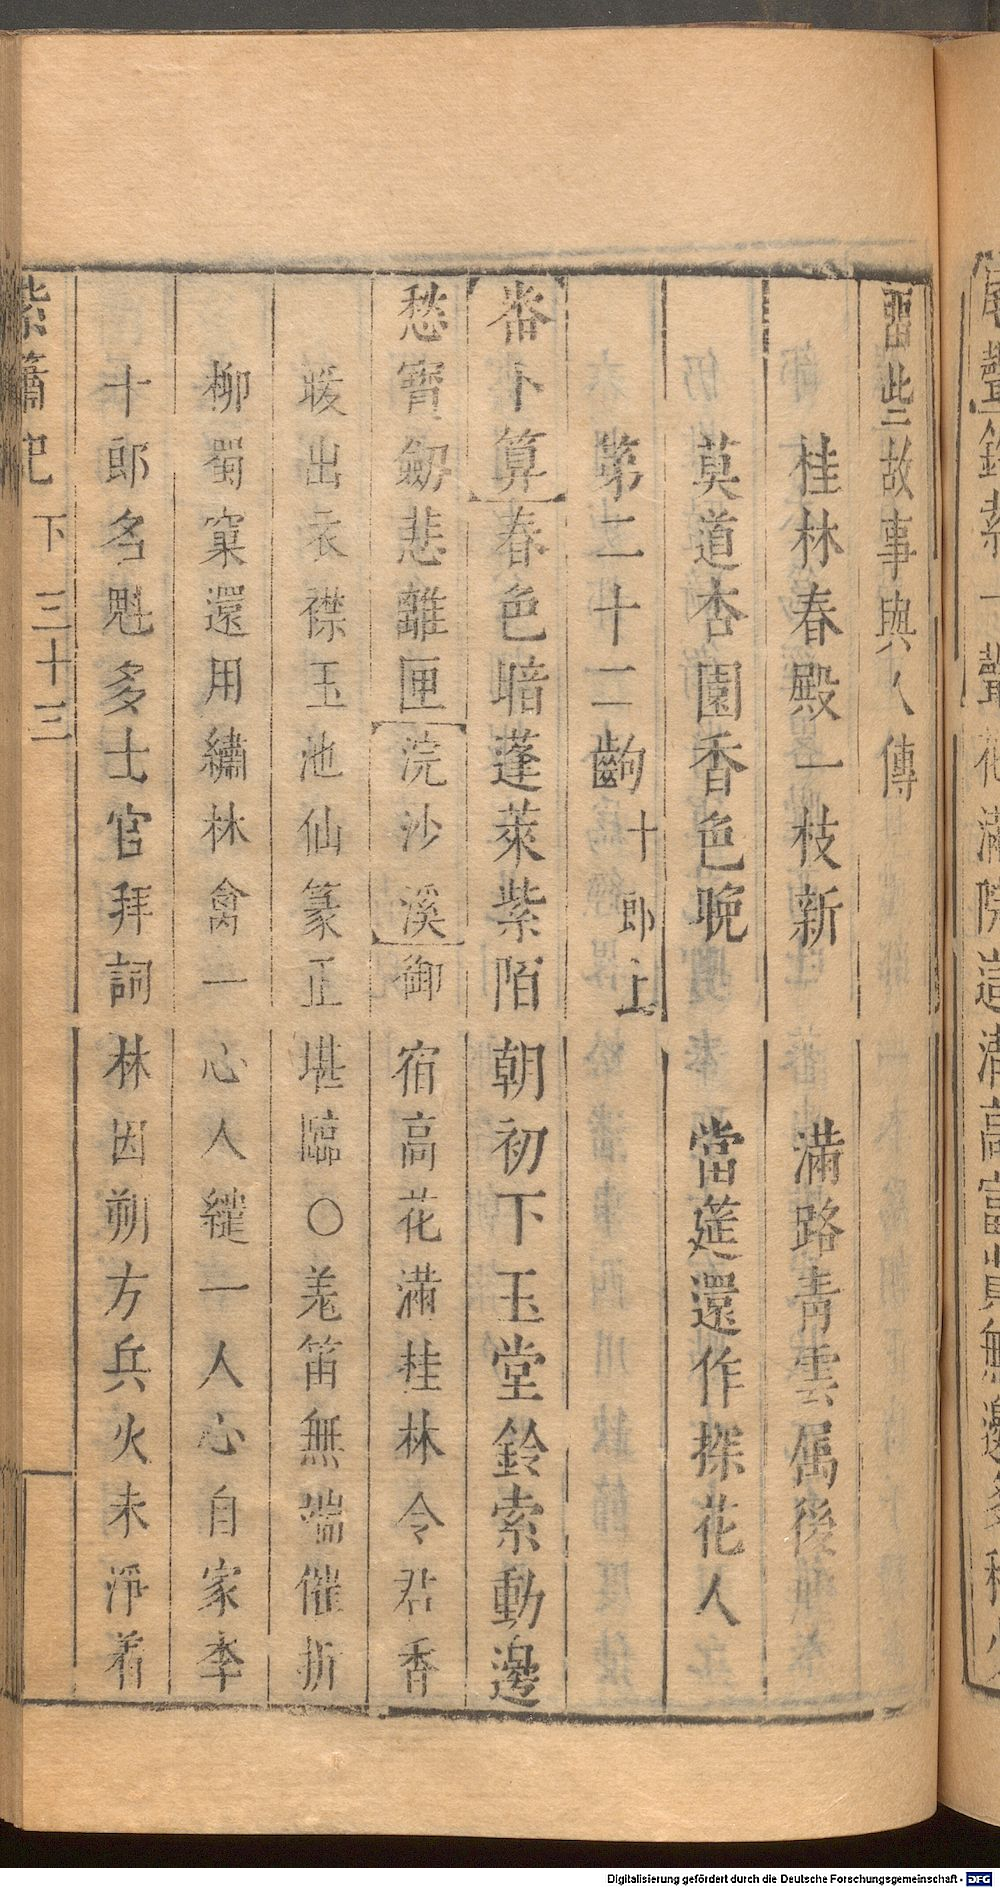 畱些故事與人傳
桂林春殿一枝新 滿路青雲屬後
莫道杏園香色晚 當筵還作探花人
第二十二齣 十郎上
番卜算 春色暗蓬萊紫陌朝初下玉堂鈴索動邊
愁寳劒悲離匣 浣沙溪 御宿高花滿桂林令君香
暖出衣襟玉池仙篆正堪臨〇羗笛無端催折
柳蜀窠還用繡林禽一心人繾一人心自家李
十郎名魁多士官拜詞林因朔方兵火未淨着
紫簫記 下 三十三
Digitalisierung gefördert durch die Deutsche Forschungsgemeinschaft - DFG